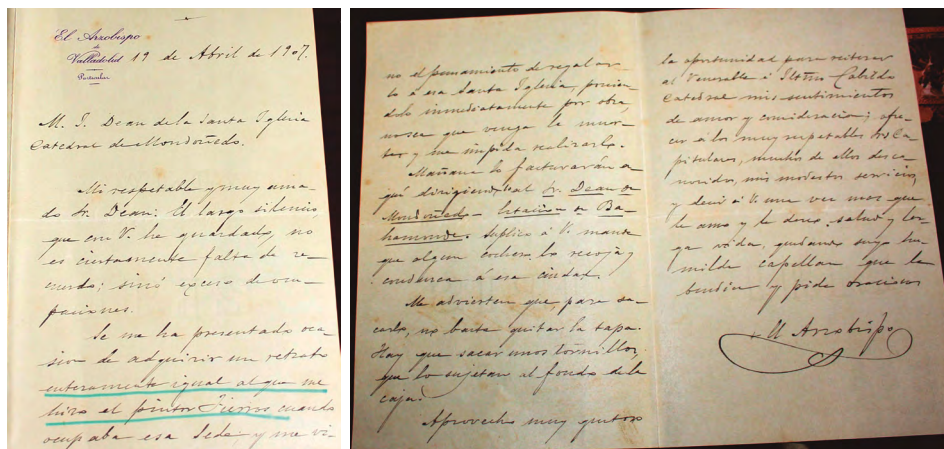 El Arzobispo
de
Valladolid
Particular
19 de Abril de 1907.
M. I. Dean de la Santa Iglesia
Catedral de Mondoñedo.
Mi respetable y muy ama-
do Sr. Dean: El largo silencio,
que con V. he guardado, no
es ciertamente falta de re-
cuerdo; sinó exceso de ocu-
paciones.
Se me ha presentado oca-
sion de adquirir un retrato
enteramente igual al que me
hizo el pintor Fierros cuando
ocupaba esa Sede y me vi-
no el pensamiento de regalar-
lo á esa Santa Iglesia, ponien-
dolo inmediatamente por obra,
no sea que venga la muer-
te y me impida realizarlo.
Mañana lo facturarán a-
quí dirigiendo al Sr. Dean de
Mondoñedo - Estacion de Ba-
hamonde. Suplico á V. mande
que algun cochero lo recoja y
conduzca á esa ciudad.
Me advierten que, para sa-
carlo, no basta quitar la tapa.
Hay que sacar unos tornillos,
que lo sujetan al fondo de la
caja.
Aprovecho muy gustoso
la oportunidad para reiterar
al Venerable é Iltmo Cabildo
Catedral mis sentimientos
de amor y consideracion; ofre-
cer á los muy respetables Sres Ca-
pitulares, muchos de ellos desco-
nocidos, mis modestos servicios,
y decir á V. una vez mas que
le amo y le deseo salud y lar-
ga vida, quedando suyo hu-
milde capellan que le
bendice y pide oraciones
El Arzobispo